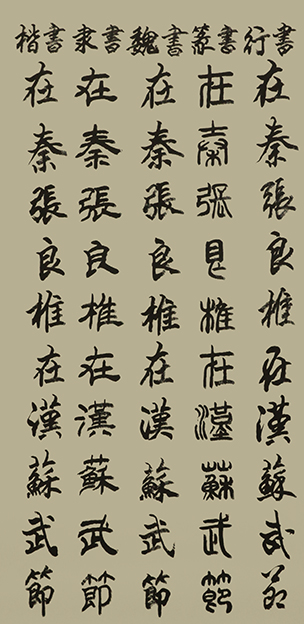 楷書
在秦張良椎在漢蘇武節
隶書
在秦張良椎在漢蘇武節
魏書
在秦張良椎在漢蘇武節
篆書
在秦張良椎在漢蘇武節
行書
在秦張良椎在漢蘇武節